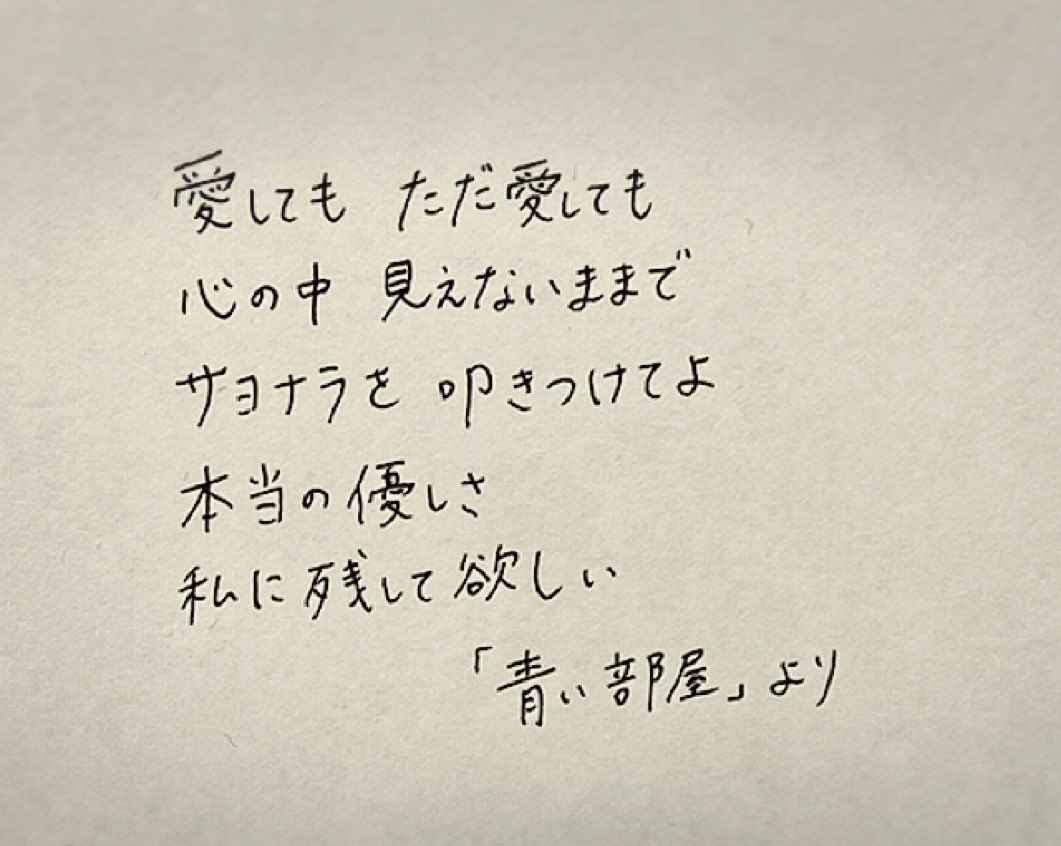 愛しても ただ愛しても
心の中 見えないままで
サヨナラを 叩きつけてよ
本当の優しさ
私に残して欲しい
「青い部屋」より